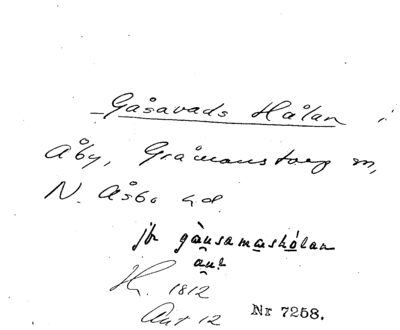 Gåsavads Hålan i
Åby, Gråmanstorp sn,
N. Åsbo hd.
jfr gånsamashólan
ant
1812
Ant 12
Nr 7258.